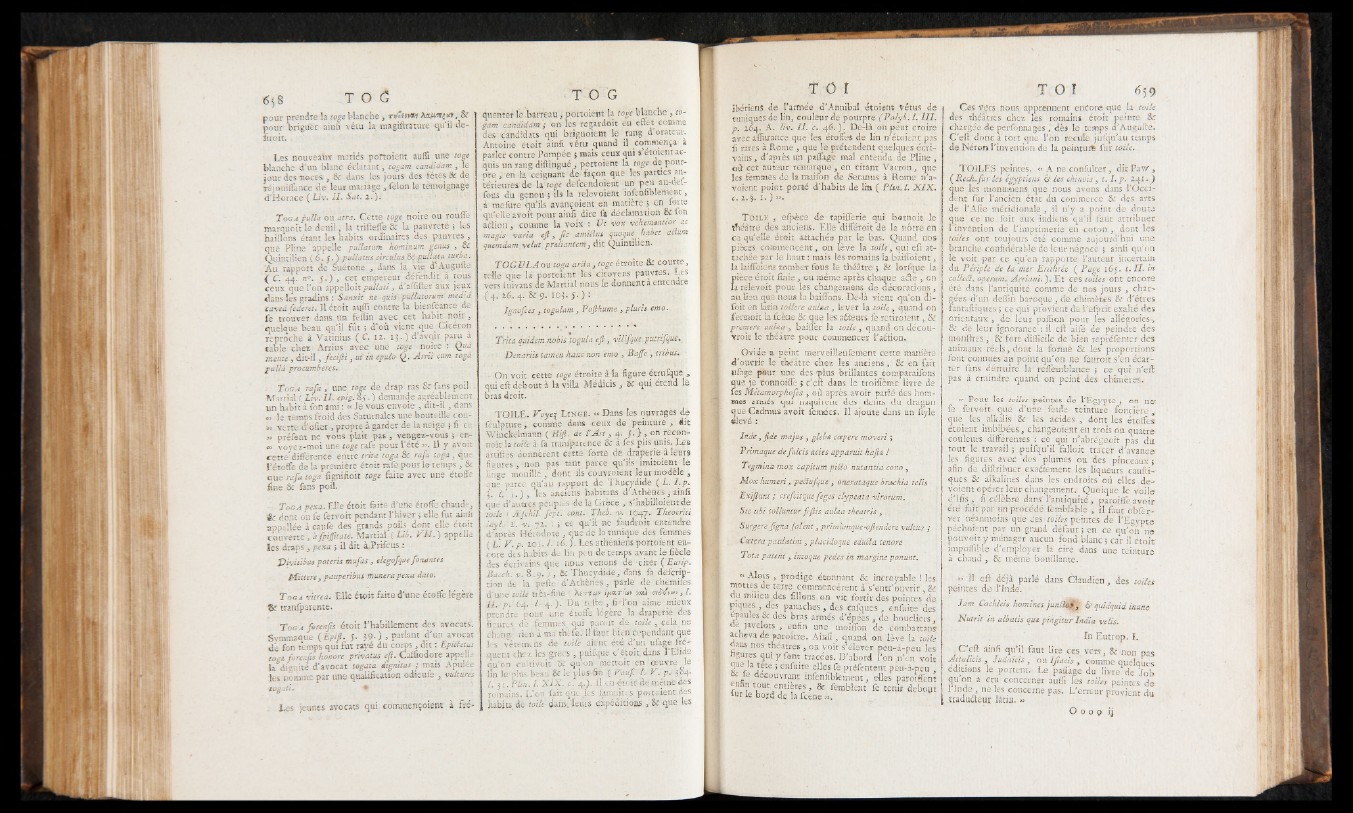 658 T O G
pour prendre la toge blanche , &
pour briguer ainsi vêtu la magistrature qu'il de-
siroit.
Les nouveaux mariés portoient aussi une toge
blanche d'un blanc éclatant, togam candidam , le
jour des noces , & dans les jours des fêtes & de
réjouissance de leur mariage , selon le témoignage
d'Horace ( Liv. II. Sat. 2.).
TOGA pulla ou atra. Cette toge noire ou rousse
marquoit le deuil , la tristesse & la pauvreté ; les
haillons étant les habits ordinaires des pauvres ,
que Pline appelle pullatum hominum genus , &
Quintilien ( 6. 5. ) pullatus circulus & pullata turba.
Au rapport de Suétone , dans la vie d'Auguste
( C. 44. n°. 5. ) , cet empereur défendit à tous
ceux que l'on appelloit pullati , d'assister aux jeux
dans les gradins : Sanxit ne quis pullatorum mediâ
caveâ sederet. Il étoit aussi contre la bienséance de
se trouver dans un festin avec cet habit noir ,
quelque beau qu'il fût ; d'où vient que Cicéron
reproche à Vatinius ( C. 12. 13. ) d'avoir paru à
table chez Arrius avec une toge noire : Quâ
mente , dit-il , fecisti , ut in epulo Q. Arrii cum togâ
pullâ procumberes.
TOGA rasa , une toge de drap ras & sans poil.
Martial ( Liv. II. epig. 85. ) demande agréablement
un habit à son ami : « Je vous envoie , dit-il , dans
» le temps froid des Saturnales une bouteille cou-
» verte d'osier , propre à garder de la neige ; si ce
» présent ne vous plaît pas , vengez-vous ; en-
» voyez-moi une toge rase pour l'été ». Il y avoit
cette différence entre trita toga & rasa toga , que
l'étoffe de la première étoit rase pour le temps , &
que rasa toga signifioit toge faite avec une étoffe
fine & sans poil.
TOGA pexa. Elle étoit faite d'une étoffe chaude,
& dont on se servoit pendant l'hiver ; elle fut ainsi
appellée à cause des grands poils dont elle étoit
couverte , à spissitate. Martial ( Lib. VII. ) appelle
les draps , pexa ; il dit à Priscus :
Divitibus poteris musas , elegosque sonantes
Mittere , pauperibus munera pexa dato.
TOGA vitrea. Elle étoit faite d'une étoffe légère
& transparente.
TOGA forensis étoit l'habillement des avocats.
Symmaque ( Epist. 5. 39. ) , parlant d'un avocat
de son temps qui fut rayé du corps , dit : Epictetus
togæ forensis honore privatus est. Cassiodore appelle
la dignité d'avocat togata dignitas ; mais Apulée
les nomme par une qualification odieuse , vultures
togati.
Les jeunes avocats qui commençoient à fré-
T O G
quenter le barreau , portoient la toge blanche , to-
gam candidam ; on les regardoit en effet comme
des candidats qui briguoient le rang d'orateur.
Antoine étoit ainsi vêtu quand il commença à
parler contre Pompée ; mais ceux qui s'étoient ac-
quis un rang distingué , portoient la toge de pour-
pre , en la ceignant de façon que les parties an-
térieures de la toge descendoient un peu au-des-
sous du genou ; ils la relevoient insensiblement ,
à mesure qu'ils avançoient en matière ; en sorte
qu'elle avoit pour ainsi dire sa déclamation & son
action , comme la voix : Ut vox vehementior ac
magis varia est , sic amictus quoque habet actum
quemdam velut præliantem , dit Quintilien.
TOGULA ou toga arcta , toge étroite & courte ,
telle que la portoient les citoyens pauvres. Les
vers suivans de Martial nous le donnent à entendre
( 4. 26. 4. & 9. 103. 5. ) :
Ignosces , togulam , Posthume , pluris emo.
. . . . . . . . . . . . . . . . . .
Trita quidem nobis togula est , vilisque putrisque.
Denariis tamen hanc non emo , Basse , tribus.
On voit cette toge étroite à la figure étrusque ,
qui est debout à la villa Médicis , & qui étend le
bras droit.
TOILE. Voyez LINGE. « Dans les ouvrages de
sculpture , comme dans ceux de peinture , dit
Winckelmann ( Hist. de l'Art , 4. 5. ) , on recon-
noît la toile à sa transparence & à ses plis unis. Les
artistes donnèrent cette sorte de draperie à leurs
figures , non pas tant parce qu'ils imitoient le
linge mouillé , dont ils couvroient leur modèle ,
que parce qu'au rapport de Thucydide ( L. I. p.
) , les anciens habitans d'Athènes , ainsi
que d'autres peuples de la Grèce , s'habilloient de
toile ( Æschil. sept. cont. Theb. v. 1047. Theocrit.
idyl. 2. v. 72. ) ; ce qu'il ne faudroit entendre
d'après Hérodote , que de la tunique des femmes
( L. V. p. 201. l. 16. ). Les athéniens portoient en-
core des habits de lin peu de temps avant le siècle
des écrivains que nous venons de citer ( Eurip.
Bacch. v. 819. ) , & Thucydide , dans sa descrip-
tion de la peste d'Athènes , parle de chemises
d'une toile très-fine : ( l.
II. p. 64. l. 4. ). Du reste , si l'on aime mieux
prendre pour une étoffe légère la draperie des
figures de femmes qui paroît de toile , cela ne
change rien à ma thèse. Il faut bien cependant que
les vêtemens de toile aient été d'un usage fré-
quent chez les grecs , puisque c'étoit dans l'Elide
qu'on cultivoit & qu'on mettoit en œuvre le
lin le plus beau & le plus fin ( Paus. l. V. p. 384.
l. 31. Plin. l. XIX. c. 4. ). Il en étoit de même des
romains. L'on sait que les samnites portoient des
habits de toile dans leurs expéditions , & que les
T O I
ibériens de l'armée d'Annibal étoient vêtus de
tuniques de lin , couleur de pourpre ( Polyb. l. III.
p. 264. A. liv. II. c. 46. ). De-là on peut croire
avec assurance que les étoffes de lin n'étoient pas
si rares à Rome , que le prétendent quelques écri-
vains , d'après un passage mal entendu de Pline ,
où cet auteur remarque , en citant Varron , que
les femmes de la maison de Serranus à Rome n'a-
voient point porté d'habits de lin ( Plin. l. XIX.
c. 2. 3. 1. ) ».
TOILE , espèce de tapisserie qui bornoit le
théâtre des anciens. Elle différoit de la nôtre en
ce qu'elle étoit attachée par le bas. Quand nos
pièces commencent , on lève la toile , qui est at-
tachée par le haut : mais les romains la baissoient ,
la laissoient tomber sous le théâtre ; & lorsque la
pièce étoit finie , ou même après chaque acte , on
la relevoit pour les changemens de décorations ,
au lieu que nous la baissons. De-là vient qu'on di-
soit en latin tollere aulæa , lever la toile , quand on
fermoit la scène & que les acteurs se retiroient , &
premere aulæa , baisser la toile , quand on décou-
vroit le théâtre pour commencer l'action.
Ovide a peint merveilleusement cette manière
d'ouvrir le théâtre chez les anciens , & en fait
usage pour une des plus brillantes comparaisons
que je connoisse ; c'est dans le troisième livre de
ses Métamorphoses , où après avoir parlé des hom-
mes armés qui naquirent des dents du dragon
que Cadmus avoit semées. Il ajoute dans un style
élevé :
Inde , fide majus , glebæ cœpere moveri ;
Primaque de sulcis acies apparuit hastæ !
Tegmina mox capitum picto nutantia cono ,
Mox humeri , pectusque , onerataque brachia telis
Existunt ; crescitque seges clypeata virorum.
Sic ubi tolluntur festis aulæa theatris ,
Surgere signa solent , primùmque ostendere vultus ;
Cætera paulatim , placidoque educta tenore
Tota patent , imoque pedes in margine ponunt.
« Alors , prodige étonnant & incroyable ! les
mottes de terre commencèrent à s'entr'ouvrir , &
du milieu des sillons on vit sortir des pointes de
piques , des panaches , des casques , ensuite des
épaules & des bras armés d'épées , de boucliers ,
de javelots , enfin une moisson de combattans
acheva de paroître. Ainsi , quand on lève la toile
dans nos théâtres , on voit s'élever peu-à-peu les
figures qui y sont tracées. D'abord l'on n'en voit
que la tête ; ensuite elles se présentent peu-à-peu ,
& se découvrant insensiblement , elles paroissent
enfin tout entières , & semblent se tenir debout
sur le bord de la scène ».
T O I 659
Ces vers nous apprennent encore que la toile
des théâtres chez les romains étoit peinte &
chargée de personnages , dès le temps d'Auguste.
C'est donc à tort que l'on recule jusqu'au temps
de Néron l'invention de la peinture sur toile.
TOILES peintes. « A ne consulter , dit Paw ,
( Rech. sur les égyptiens & les chinois , t. I. p. 241. )
que les monumens que nous avons dans l'Occi-
dent sur l'ancien état du commerce & des arts
de l'Asie méridionale , il n'y a point de doute
que ce ne soit aux indiens qu'il faut attribuer
l'invention de l'imprimerie en coton , dont les
toiles ont toujours été comme aujourd'hui une
branche considérable de leur négoce ; ainsi qu'on
le voit par ce qu'en rapporte l'auteur incertain
du Périple de la mer Erithrée ( Page 165. t. II. in
collect. operum. Arriani. ). Et ces toiles ont encore
été dans l'antiquité comme de nos jours , char-
gées d'un dessin baroque , de chimères & d'êtres
fantastiques ; ce qui provient de l'esprit exalté des
orientaux , de leur passion pour les allégories ,
& de leur ignorance : il est aisé de peindre des
monstres , & fort difficile de bien représenter des
animaux réels , dont la forme & les proportions
sont connues au point qu'on ne sauroit s'en écar-
ter sans détruire la ressemblance ; ce qui n'est
pas à craindre quand on peint des chimères.
» Pour les toiles peintes de l'Egypte , on ne
se servoit que d'une seule teinture foncière ,
que les alkalis & les acides , dont les étoffes
étoient imbibées , changeoient en trois ou quatre
couleurs différentes : ce qui n'abrégeoit pas du
tout le travail ; puisqu'il falloit tracer d'avance
les figures avec des plumes ou des pinceaux ;
afin de distribuer exactement les liqueurs causti-
ques & alkalines dans les endroits où elles de-
voient opérer leur changement. Quoique le voile
d'Isis , si célèbre dans l'antiquité , paroisse avoir
été fait par un procédé semblable , il faut obser-
ver néanmoins que ces toiles peintes de l'Egypte
péchoient par un grand défaut ; en ce qu'on ne
pouvoit y ménager aucun fond blanc ; car il étoit
impossible d'employer la cire dans une teinture
à chaud , & même bouillante.
» Il est déjà parlé dans Claudien , des toiles
peintes de l'Inde.
Jam Cochleis homines junctos , & quidquid inane
Nutrit in albatis quæ pingitur India velis.
In Eutrop. I.
C'est ainsi qu'il faut lire ces vers , & non pas
Artelicis , Judaicis , ou Isiacis , comme quelques
éditions le portent. Le passage du livre de Job
qu'on a cru concerner aussi les toiles peintes de
l'Inde , ne les concerne pas. L'erreur provient du
traducteur latin. »
O o o o ij